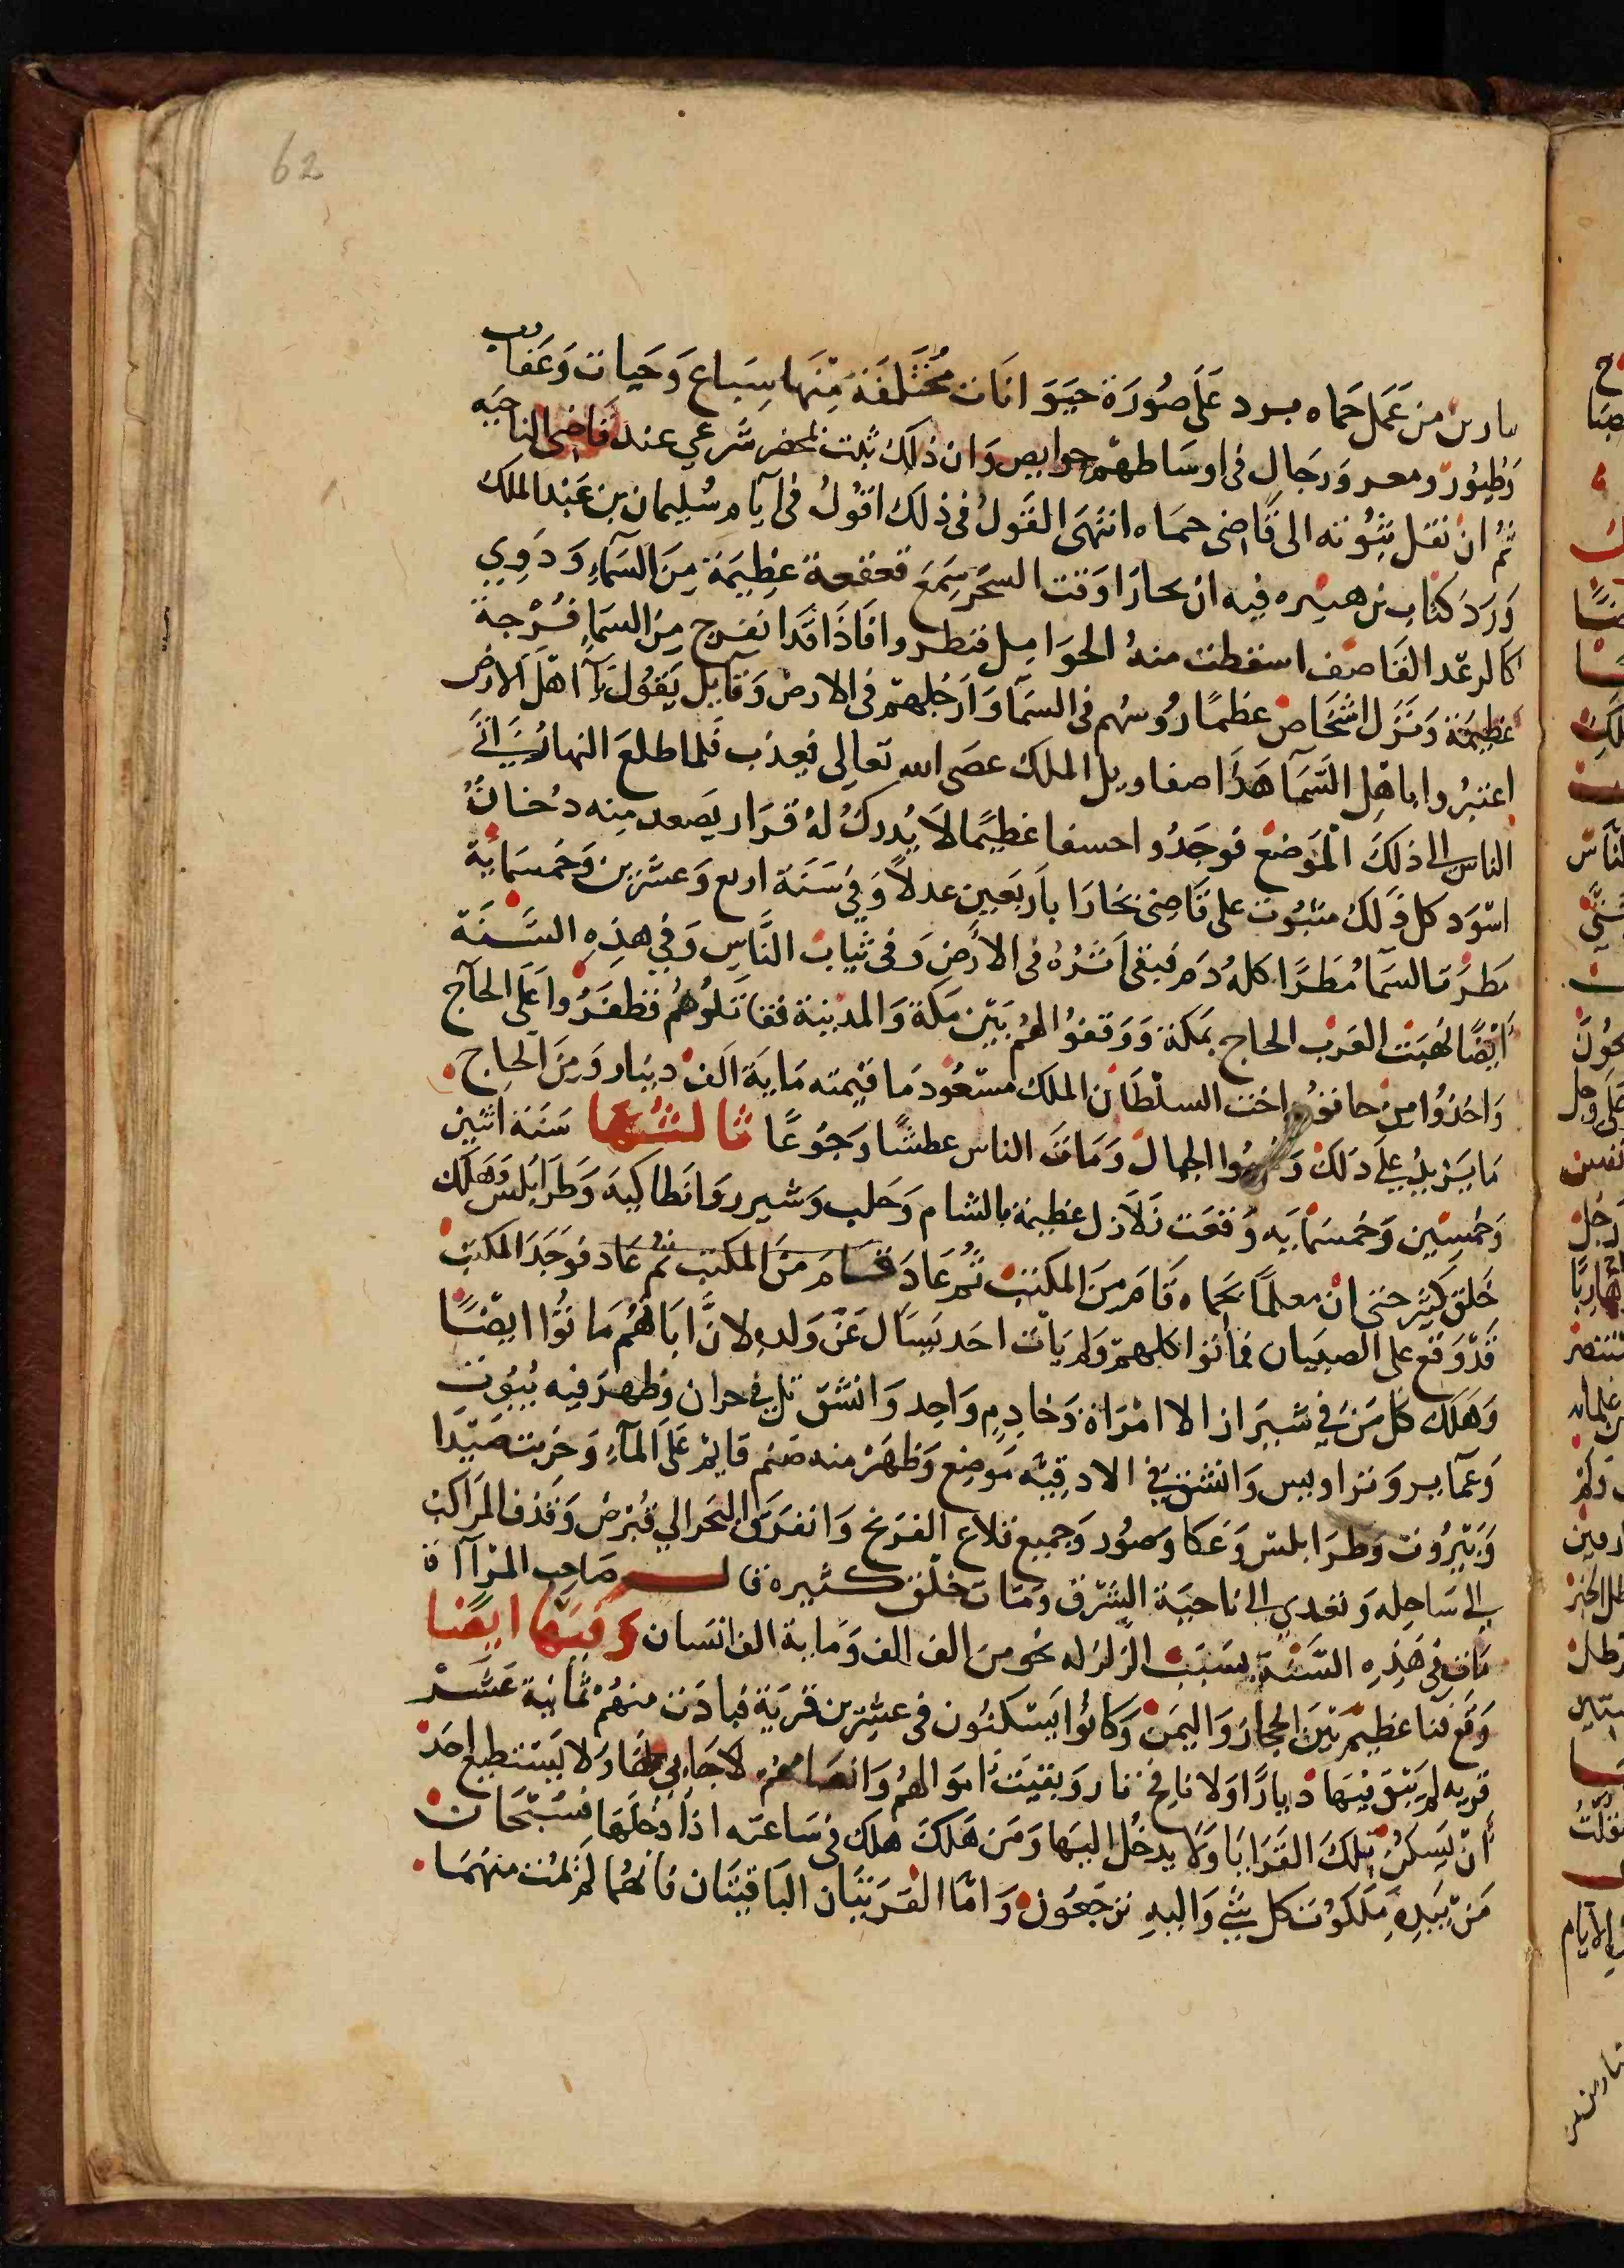 62
بارين من عمل حماه برد على صورة حيوانات مختلفة منها سباع وحيات وعقارب
وطيور ومعر ورجال فى اوساطهم حوايص وان ذلك ثبت بمحضر شرعي عند قاضى الناحيه
ثم ان نقل ثبوته الى قاضى حماه انتهى القول فى ذلك اقول فى ايام سليمان بن عبد الملك
ورد كتاب بن هبيره فيه ان بحارا وقت السحر سمع قعقعة عظيمة من السمآء ودوي
كالرعد القاصف اسقطت منه الحوامل فنظروا فاذا قد انفرج من السمآء فرجة
عظيمة ونزل اشخاص عظما روسهم فى السمآ وارجلهم فى الارض وقايل يقول يآ اهل الارض
اعتبروا باهل السمآ هذا صفاويل الملك عصى الله تعالى فعذب فلما طلع النهار اتى
الناس الى ذلك الموضع فوجدوا خسفا عظيما لا يدرك له قرار يصعد منه دخان
اسود كل ذلك مثبوت على قاضى بخارا باربعين عدلا وفي سنة اربع وعشرين وخمسماية
مطرت السمآ مطرا كله دم فبقى اثره فى الأرض وفى ثياب الناس وفي هذه السنة
أيضا نهبت العرب الحاج بمكة ووقفوا لهم بين مكة والمدينة فقاتلوهم فظفروا على الحآج
واخذوا من خاتون اخت السلطان الملك مسعود ما قيمته ماية الف دينار ومن الحاج
ما يزيد على ذلك الجمال ومات الناس عطشا وجوعا ثالثها سنة اثنين
وخمسين وخمسمايه وقعت زلازل عظيمة بالشام وحلب وشيرر وانطاكيه وطرابلس وهلك
خلق كثير حتى ان معلما بحماه قام من المكتب ثم عاد قام من المكتب ثم عاد فوجد المكتب
قد وقع على الصبيان فماتوا كلهم ولم يات احد يسال عن ولده لان اباهم ماتوا ايضا
وهلك كل من في شيراز الا امراة وخادم واحد وانشق تل في حران وظهر فيه بيوت
وعمآير ونواويس وانشق في الادقيه موضع وظهر منه صنم قايم على المآء وخربت صيدا
وبيروت وطرابلس وعكا وصور وجميع قلاع الفرنج وانفرق البحر الي قبرض وقذف المراكب
الى ساحله وتعدي الى ناحية الشرق ومات خلق كثيره قال صاحب المرآاة
مات فى هذه السنة بسبب الزلزله نحو من الف الف وماية الف انسان وفيها ايضا
وقع فنا عظيم بين الحجاز واليمن وكانوا يسكنون فى عشرين قرية فبادت منهم ثمانية عشر
قريه لم يبق فيها ديارا ولا نافخ نار وبقيت اموالهم ولا يستطيع احد
أن يسكن تلك القرايا ولا يدخل اليها ومن هلك هلك فى ساعته اذا دخلها فسبحان
من بيده ملكوت كل شي واليه ترجعون واما القريتان الباقيتان فانهما لم يمت منهما